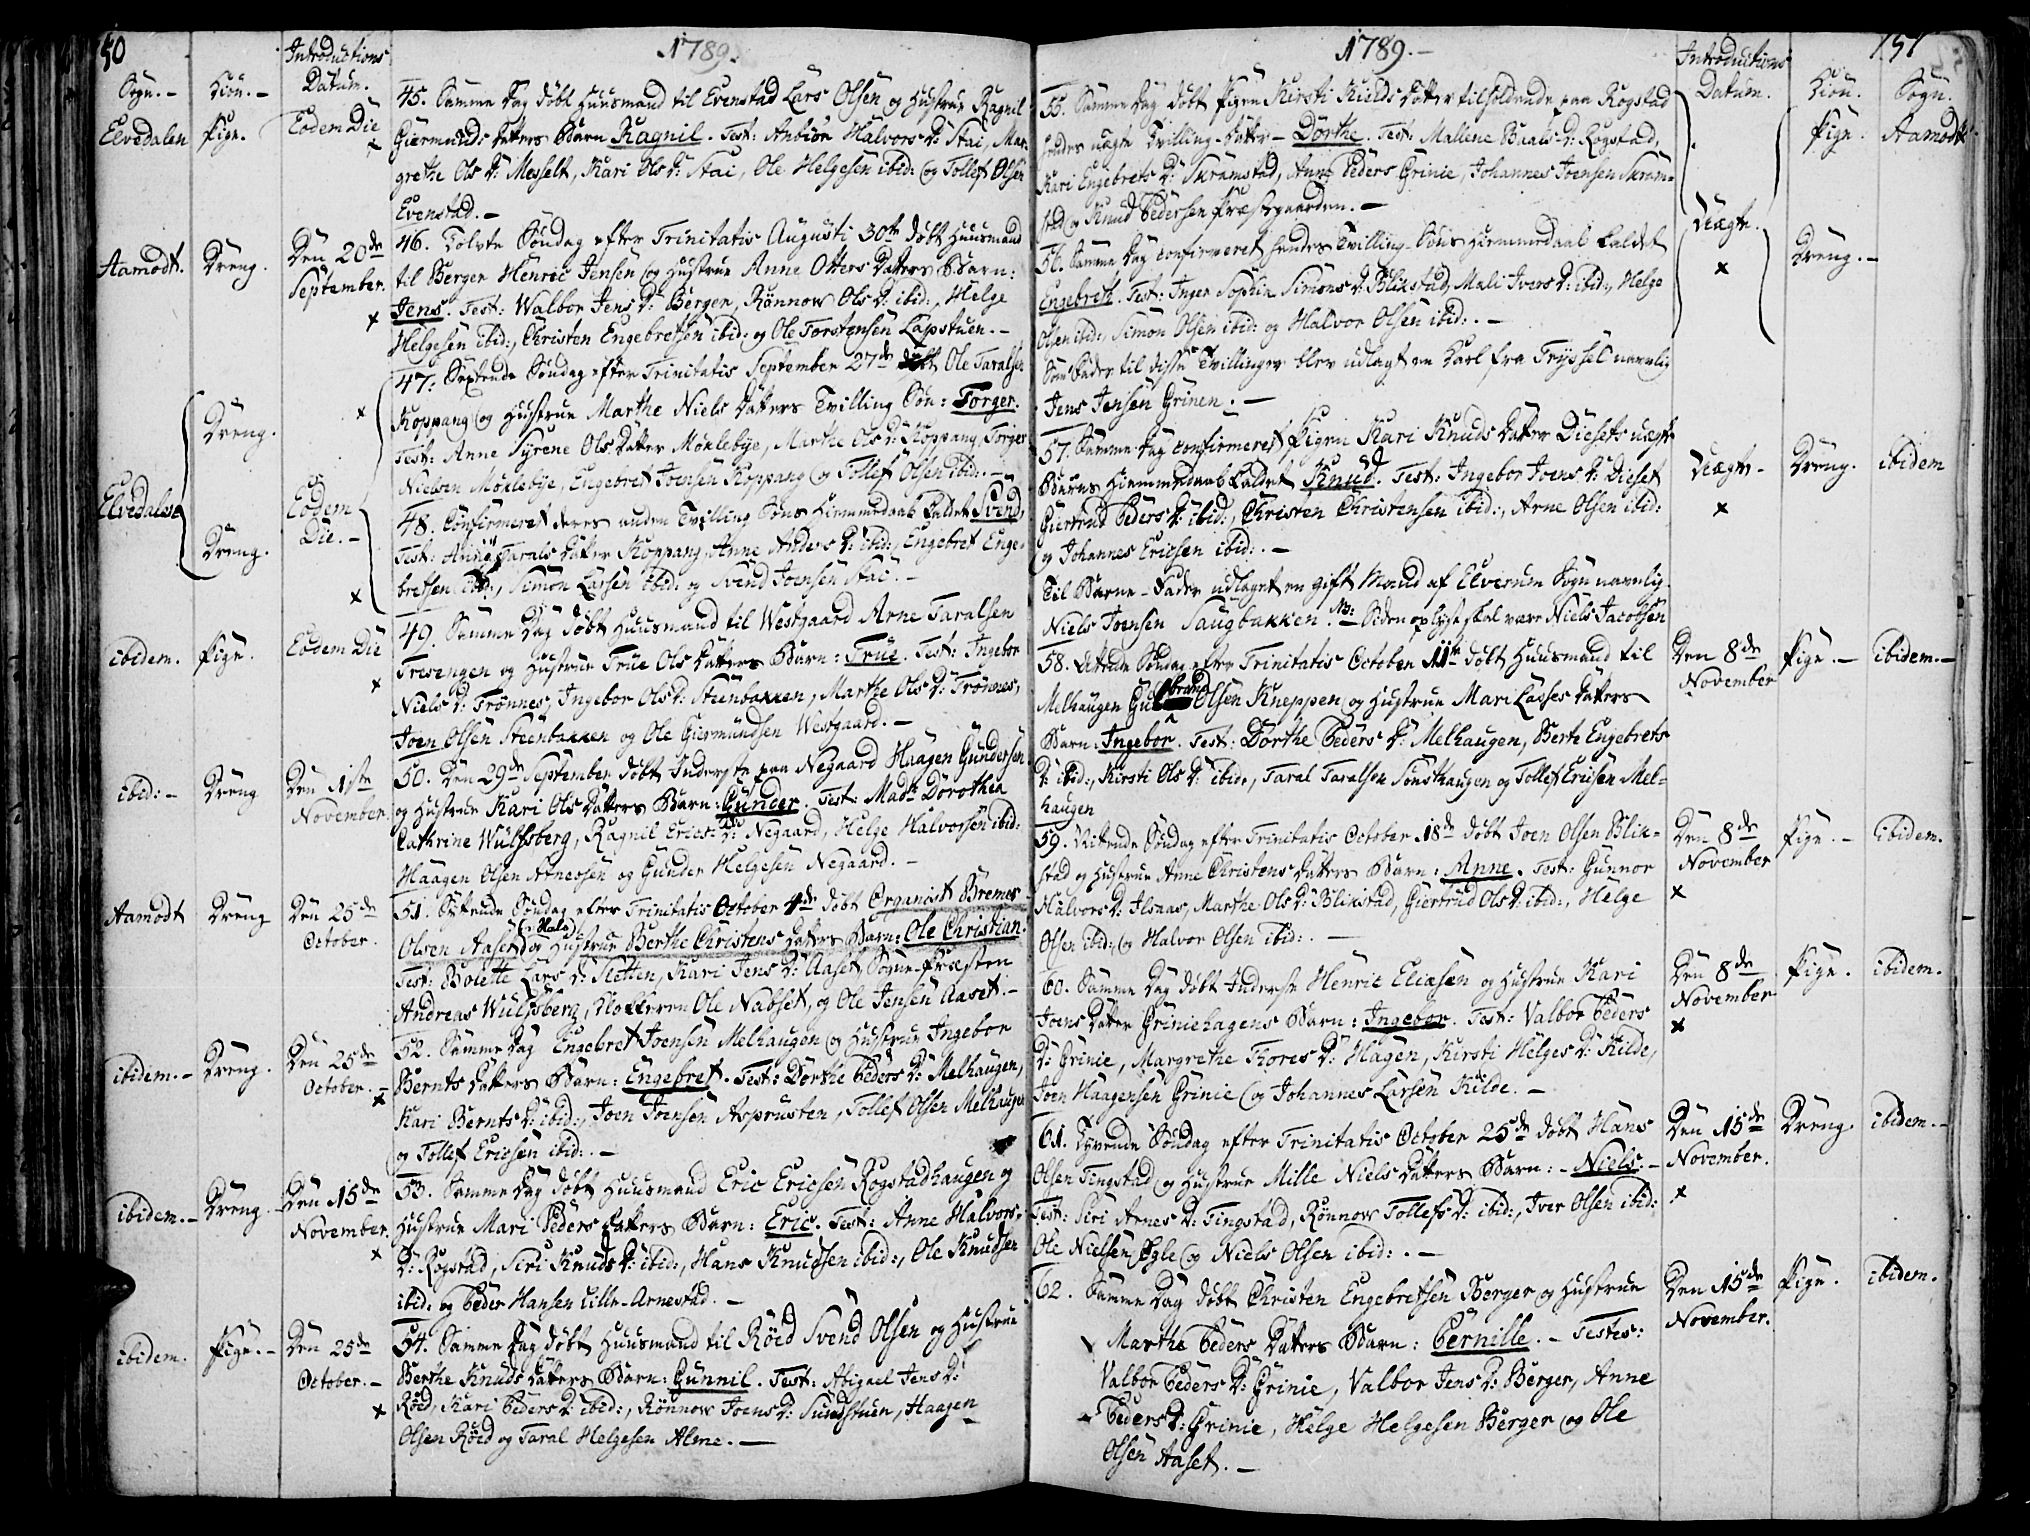 50
1789.
Introductions
Sogn. - Kiön. - Datum.
Elvedalen Pige. Eodem Die
45. Samme Dag döbt Huusmand til Evenstad Lars Olsen og Hustrue Ragnil
Giermunds Datters Barn Ragnil. Test: Halvors D: Stai, Mar-
grethe Ols D: Messelt, Kari Ols D: Stai, Ole Helgesen ibid: og Tollef Olsen
Evenstad. -
Aamodt. Dreng. Den 20de September.
46. Tolvte Söndag efter Trinitatis Augusti 30te döbt Huusmand
til Berger Henric Jensen og Hustrue Anne Otters Datters Barn:
Jens. Test: Walbor Jens D: Berger, Rönnow Ols D: ibid:, Helge
Helgesen ibid:, Christen Engebretsen ibid: og Ole Torstensen Lapstuen. -
Elvedalen Dreng. Dreng. Eodem Die. -
47. Sextende Söndag efter Trinitatis September 27de döbt Ole Taralsen
Koppang og Hustrue Marthe Niels Datters Tvilling Sön: Torger.
Test: Anne Syrene Ols Datter Möklebye, Marthe Ols D: Koppang, Torger
Nielsen Möklebye, Engebret Joensen Koppang og Tollef Olsen ibid: -
48. Confirmeret deres anden Tvilling Söns Hiemmedaab kaldet Svend,
Test: Tarals Datter Koppang, Anne Anders D: ibid:, Engebret Enge-
bretsen ibid:, Simon Larsen ibid: og Svend Joensen Stai. -
ibidem. Pige. Eodem Die
49. Samme Dag döbt Huusmand til Westgaard Arne Taralsen
Tresengen og Hustrue True Ols Datters Barn: True. Test: Ingebor
Niels D: Trönnes, Ingebor Ols D: Steenbakken, Marthe Ols D: Trönnes,
Joen Olsen Steenbakken og Ole Giermundsen Westgaard. -
ibid: - Dreng Den 1ste November.
50. Den 29de September döbt Inderste paa Negaard Haagen Gundersen
og Hustrue Kari Ols Datters Barn: Gunder. Test: Mad: Dorothea
Cathrine Wulfsberg, Ragnil Erics D: Negaard, Helge Halvorsen ibid:
Haagen Olsen Arnessen og Gunder Helgesen Negaard. -
Aamodt Dreng Den 25de October.
51. Syttende Söndag efter Trinitatis October 4de döbt Organist Bremes
Olsen Aaset og Hustrue Berthe Christens Datters Barn: Ole Christian.
Test: Bolette Lars D: Sletten, Kari Jens D: Aaset, Sogne-Præsten
Andreas Wulfsberg, Klokkeren Ole Nabset, og Ole Jensen Aaset. -
ibidem. - Dreng. Den 25de October. -
52. Samme Dag Engebret Joensen Melhaugen og Hustrue Ingebor
Bernts Datters Barn: Engebret. Test: Dorthe Peders D: Melhaugen,
Kari Bernts D: ibid:, Joen Joensen Asprusten, Tollef Olsen Melhaugen
og Tollef Ericsen ibid:. -
ibidem. - Dreng. Den 15de November.
53. Samme Dag döbt Huusmand Eric Ericsen Rogstadhaugen og
Hustrue Mari Peders Datters Barn: Eric. Test: Anne Halvors
D: Rogstad, Siri Knuds D: ibid:, Hans Knudsen ibid:, Ole Knudsen
ibid: og Peder Hansen Lille-Arnestad. -
ibidem. Pige. - Den 25de October. -
54. Samme Dag döbt Huusmand til Röed Svend Olsen og Hustrue
Berthe Knuds Datters Barn: Gunnil. Test: Abigael Jens D:
Röed, Kari Peders D: ibid:, Rönnow Joens D: Sundstuen, Haagen
Olsen Röed og Taral Helgesen Alme. -
151
1789. -
Introductions
Datum. Kiön. Sogn.
55. Samme Dag döbt Pigen Kirsti Kields Datter tilholdende paa Rogstad
hendes uægte Tvilling-Datter - Dorthe. Test: Mallene Paals D: Rogstad,
Kari Engebrets D: Skramstad, Anne Peders Grinie, Johannes Joensen Skram-
stad og Knud Pedersen Præstegaarden. -
Pige. Aamodt.
56. Samme Dag confirmeret hendes Tvilling-Söns Hiemmedaab kaldet
Engebreth. Test: Inger Sophie Simons D: Blikstad, Mali Ivers D: ibid:, Helge
Olsen ibid:, Simon Olsen ibid: og Halvor Olsen ibid:. -
Som Fader til disse Tvillinger blev udlagt en Karl fra Tryssel navnlig
Jens Jensen Grinen. -
Uægte. Dreng. -
57. Samme Dag confirmeret Pigen Kari Knuds Datter Diesets uægte
Barns Hiemmedaab kaldet Knud. Test: Ingebor Joens D: Dieset
Giertrud Peders D: ibid:, Christen Christensen ibid:, Arne Olsen ibid:
og Johannes Ericsen ibid:. -
Til Barne-Fader udlagt en gift Mand af Elverum Sogn navnlig
Niels Joensen Saugbakken. NB: Siden oplyst skal være Niels Jacobsen
Uægte - Dreng. ibidem
58. Attende Söndag efter Trinitatis October 11te döbt Huusmand til
Melhaugen Gulbrand Olsen Kneppen og Hustrue Mari Lasses Datters
Barn: Ingebor. Test: Dorthe Peders D: Melhaugen, Berte Engebrets
D: ibid:, Kirsti Ols D: ibid:, Taral Taralsen Sönsthaugen og Tollef Ericsen Mel-
haugen
Den 8de November Pige. - ibidem. -
59. Nittende Söndag efter Trinitatis October 18de döbt Joen Olsen Blik-
stad og Hustrue Anne Christens Datters Barn: Anne. Test: Gunnor
Halvors D: Ilsaas, Marthe Ols D: Blikstad, Giertrud Ols D: ibid:, Helge
Olsen ibid:, og Halvor Olsen ibid:. -
Den 8de November Pige. - ibidem.
60. Samme Dag döbt Inderste Henric Eliæsen og Hustrue Kari
Joens Datter Griniehagens Barn: Ingebor. Test: Valbor Peders
D: Grinie, Margrethe Tores D: Hagen, Kirsti Helges D: Kilde,
Joen Haagensen Grinie og Johannes Larsen Kilde. -
Den 8de November Pige. ibidem.
61. Tyvende Söndag efter Trinitatis October 25de döbt Hans
Olsen Tingstad og Hustrue Mille Niels Datters Barn: - Niels. -
Test: Siri Arnes D: Tingstad, Rönnow Tollefs D: ibid:, Iver Olsen ibid:
Ole Nielsen Ygle og Niels Olsen ibid:. -
Den 15de November. Dreng. ibidem. -
62. Samme Dag döbt Christen Engebretsen Berger og Hustrue
Marthe Peders Datters Barn: Pernille. - Testes:
Valbor Peders D: Grinie, Valbor Jens D: Berger, Anne
Peders D: Grinie, Helge Helgesen Berger og Ole
Olsen Aaset. -
Den 15de November. Pige. ibidem.